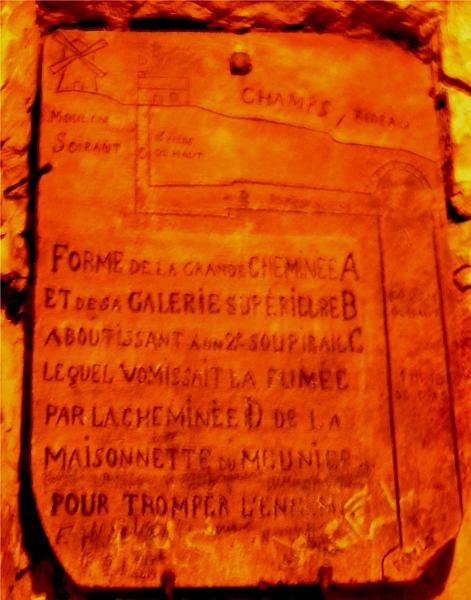 CHAMPS, RIDEAU
MOULIN
SOIRANT
DE HAUT
FORME DE LA GRANDE CHEMINÉE A
ET DE SA GALERIE SUPÉRIEURE B
ABOUTISSANT À UN 2E SOUPIRAIL C
LEQUEL VOMISSAIT LA FUMÉE
PAR LA CHEMINÉE D DE LA
MAISONNETTE DU MEUNIER
POUR TROMPER L'ENNEMI